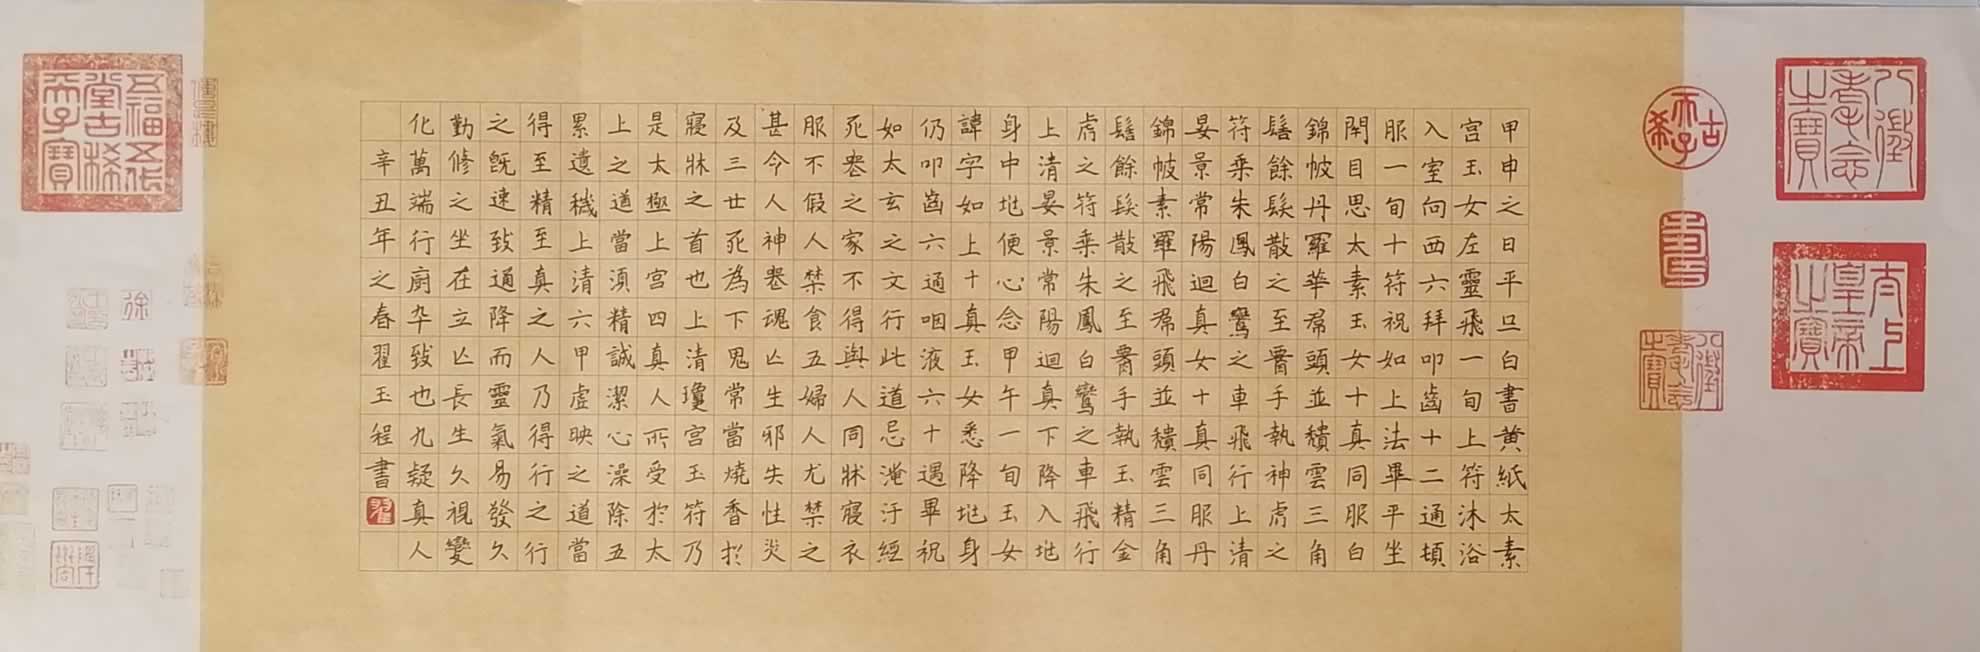 八徵耄念之寶
太上皇帝之寶
古希天子
壽
八徵耄念之寶
甲申之日平旦白書黃紙太素
宮玉女左靈飛一旬上符沐浴
入室向西六拜叩齒十二通頓
服一旬十符祝如上法畢平坐
閉目思太素玉女十真同服白
錦帔丹羅華帬頭並穨雲三角
髻餘髮散之至腰手執神虎之
符乘朱鳳白鸞之車飛行上清
晏景常陽迴真女十真同服丹
錦帔素羅飛帬頭並穨雲三角
髻餘髮散之至腰手執玉精金
虎之符乘朱鳳白鸞之車飛行
上清晏景常陽迴真下降入地
身中地便心念甲午一旬玉女
諱字如上十真玉女悉降地身
仍叩齒六通咽液六十過畢祝
如太玄之文行此道忌淹汙經
死喪之家不得與人同牀寢衣
服不假人禁食五婦人尤禁之
甚今人神喪魂亡生邪失性災
及三世死為下鬼常當燒香於
寢牀之首也上清瓊宮玉符乃
是太極上宮四真人所受於太
上之道當須精誠潔心澡除五
累遺穢上清六甲虛映之道當
得至精至真之人乃得行之行
之既速致通降而靈氣易發久
勤修之坐在立亡長生久視變
化萬端行廚卒致也九疑真人
辛丑年之春翟玉程書
翟
五福五代堂古稀天子寶
徐